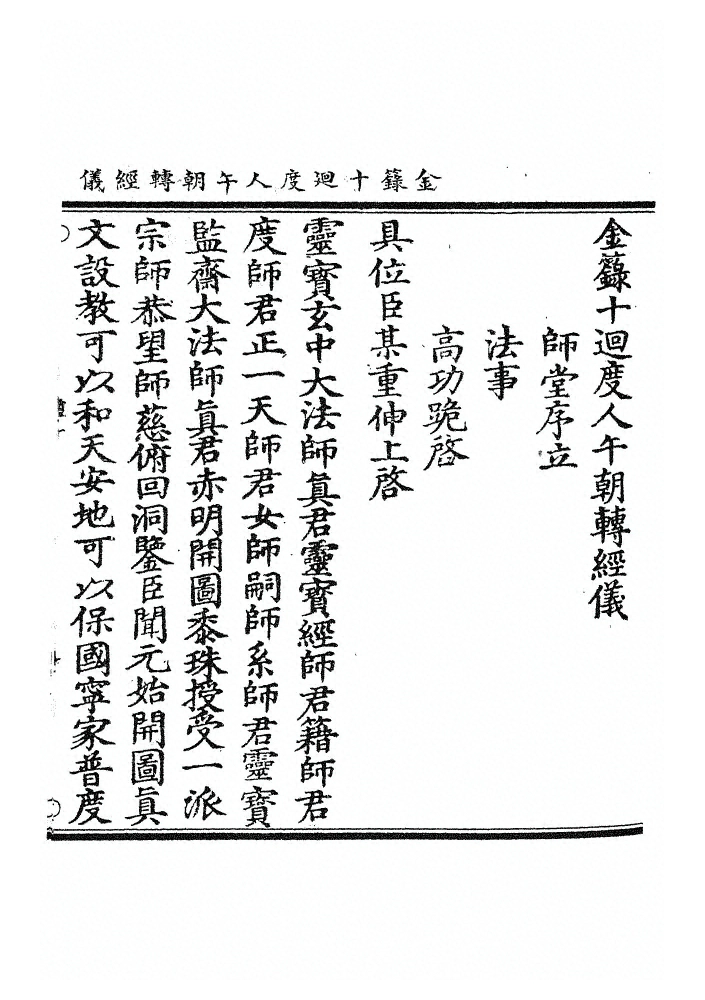 金籙十迴度人午朝轉經儀
金籙十迴度人午朝轉經儀
師堂序立
法事
高功跪啓
具位臣某重伸上啓
靈寶玄中大法師眞君靈寶經師君籍師君
度師君正一天師君女師嗣師系師君靈寶
監齋大法師眞君赤明開圖黍珠授受一派
宗師恭望師慈俯回洞鑒臣聞元始開圖眞
文設教可以和天安地可以保國寧家普度